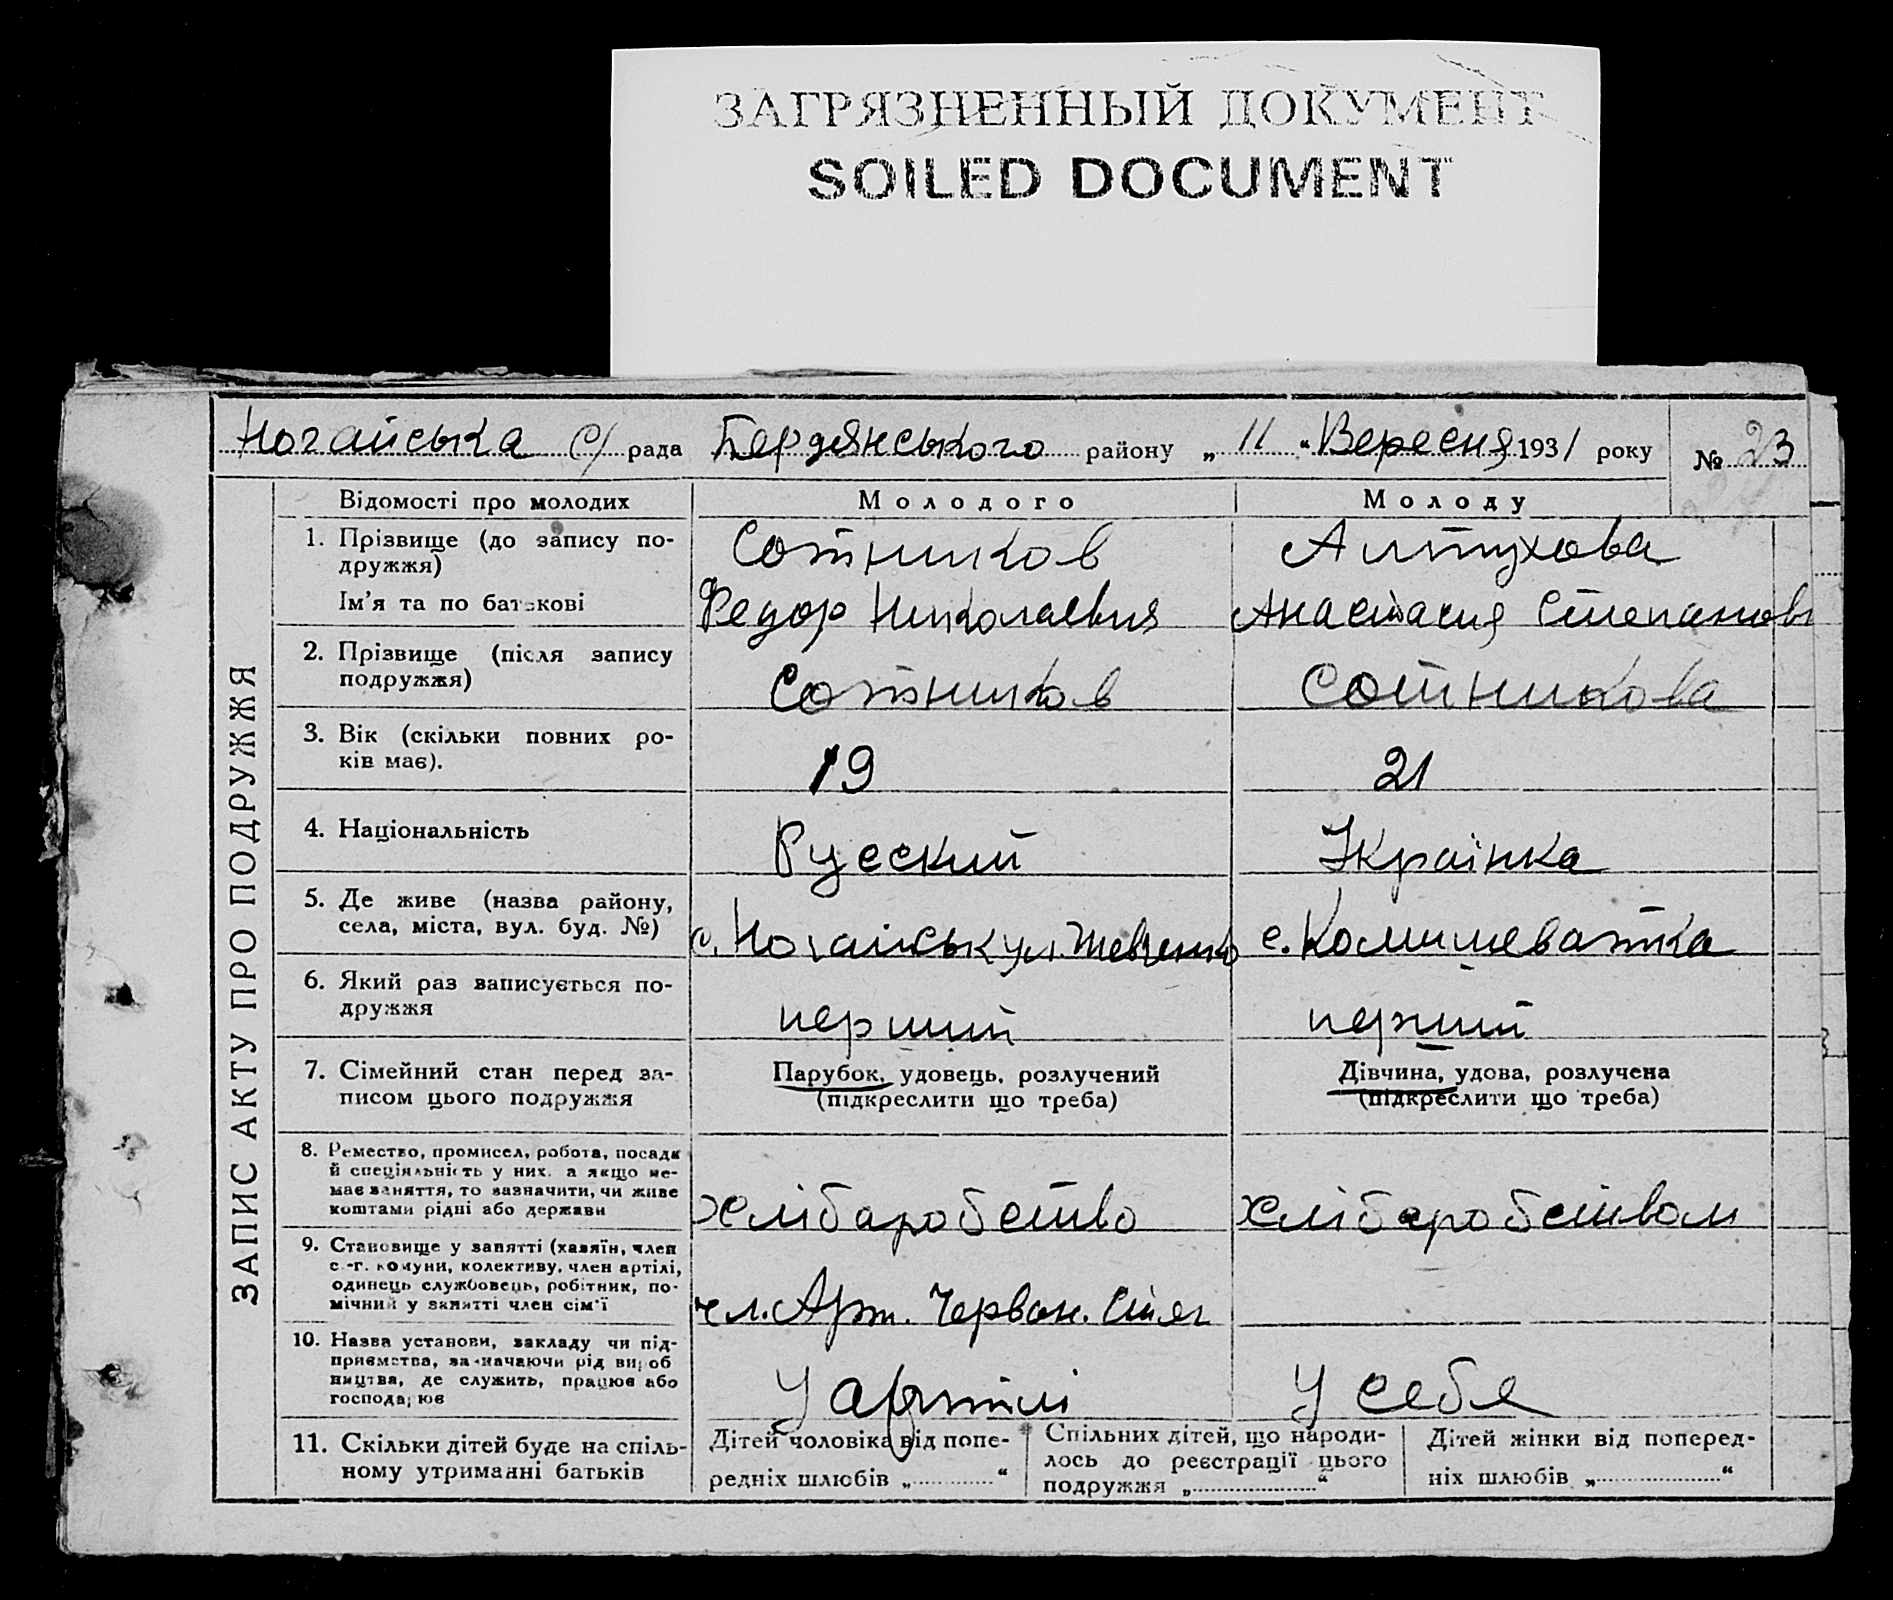 ЗАГРЯЗНЕННЫЙ ДОКУМЕНТ
SOILED DOCUMENT
Ногайська С/ рада Бердянського району „ 11 “ Вересня 1931 року № 23
ЗАПИС АКТУ ПРО ПОДРУЖЖЯ
Відомості про молодих Молодого Молоду
1. Прізвище (до запису по-
дружжя)
Сотников Алтухова
Ім'я та по батькові
Федор Николаевич Анастасия Степанов
2. Прізвище (після запису
подружжя)
Сотников Сотникова
3. Вік (скільки повних ро-
ків має).
19 21
4. Національність Русский Українка
5. Де живе (назва району,
села, міста, вул. буд. №)
с. Ногайськ ул. Шевченко с. Комишеватка
6. Який раз записується по-
дружжя
перший перший
7. Сімейний стан перед за-
писом цього подружжя
Парубок, удовець, розлучений
(підкреслити що треба)
Дівчина, удова, розлучена
(підкреслити що треба)
8. Ремество, промисел, робота, посада
й спеціяльність у них, а якщо не-
має заняття, то зазначити, чи живе
коштами рідні або держави
хлібаробство хлібаробством
9. Становище у занятті (хазяїн, член
с.-г. комуни, колективу, член артілі,
одинець службовець, робітник, по-
мічний у занятті член сім'ї
чл. Арт. Червон. Стяг
10. Назва установи, закладу чи під-
приємства, зазначаючи рід вироб
ництва, де служить, працює або
господарює
У артілі У себя
11. Скільки дітей буде на спіль-
ному утриманні батьків
Дітей чоловіка від попе-
редніх шлюбів „ “
Спільних дітей, що народи-
лось до реєстрації цього
подружжя „ “
Дітей жінки від поперед-
ніх шлюбів „ “